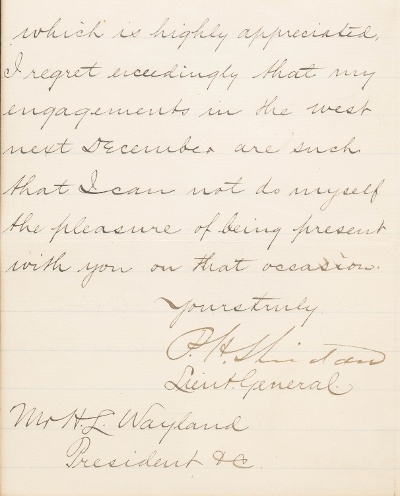 which is highly appreciated.
I regret exceedingly that my
engagements in the west
next December are such
that I can not do myself
the pleasure of being present
with you on that occasion.
Yours truly
P. H. Sheridan
Lieut. General.
Mr H. L. Wayland
President &c.